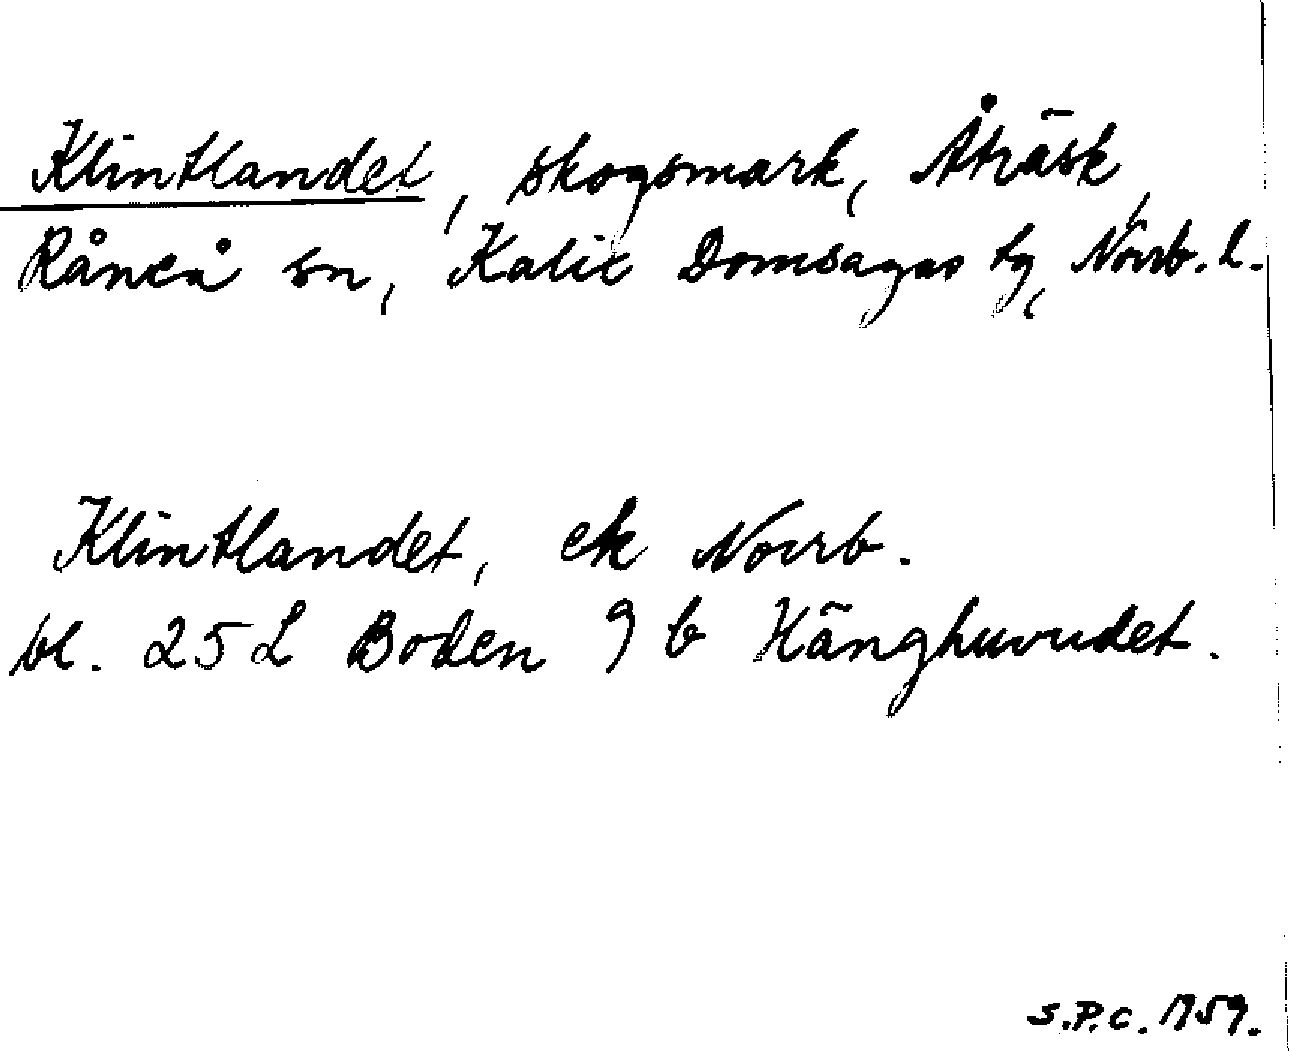 Klintlandet, skogsmark, Åträsk,
Råneå sn, Kalix Domsagas tg, Norrb. l.
Klintlandet, ek Norrb.
bl. 25 L Boden 9 b Hänghuvudet.
S.P.C. 1959.